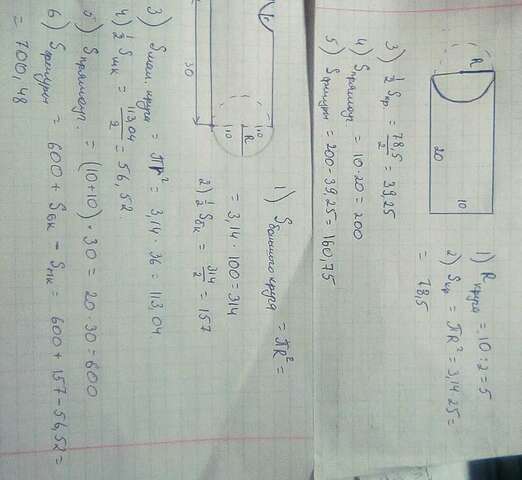 R
20
10
1) R круга = 10:2=5
2) Sкр = πR² = 3,14·25 =
= 78,5
3) ½ Sкр = 78,5/2 = 39,25
4) Sпрямоуг = 10·20 = 200
5) Sфигуры = 200 - 39,25 = 160,75
30
10 R 10
1) Sбольшого круга = πR² =
= 3,14·100=314
2) ½ Sбк = 314/2 = 157
3) Sмал. круга = πr² = 3,14·36 = 113,04
4) ½ Sмк = 113,04/2 = 56,52
5) Sпрямоуг. = (10+10)·30 = 20·30=600
6) Sфигуры = 600 + Sбк - Sмк = 600+157-56,52 =
= 700,48